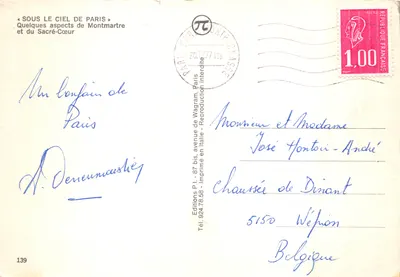 « SOUS LE CIEL DE PARIS »
Quelques aspects de Montmartre
et du Sacré-Cœur
Un bonjour de
Paris
139
Editions P.I. - 87 bis, avenue de Wagram, Paris
Tél. 924.78.58 - Imprimé en Italie - Reproduction interdite
π
1.00
RÉPUBLIQUE FRANÇAISE
Monsieur et Madame
José Hontoir-André
Chaussée de Dinant
5150 Wépion
Belgique